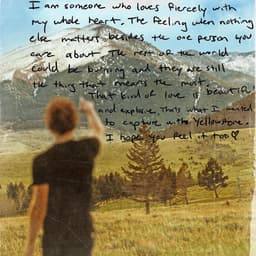 I am someone who loves fiercely with
my whole heart. The feeling when nothing
else matters besides the one person you
care about. The rest of the world
could be burning and they are still
the thing that means the most.
That kind of love is beautiful
and explore. Thats what I wanted
to capture with Yellowstone.
I hope you feel it too♡